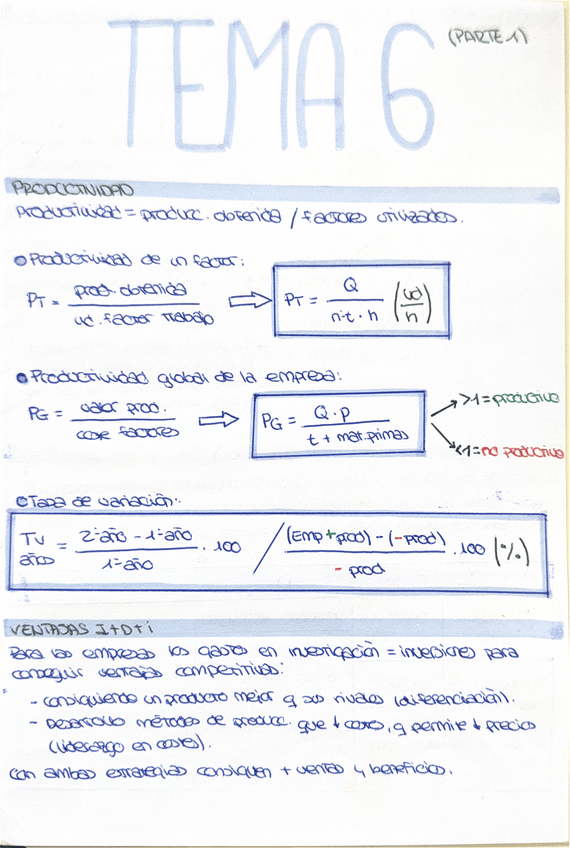 TEMA 6 (PARTE 1)
PRODUCTIVIDAD
Productividad = producc. obtenida / factores utilizados.
• Productividad de un factor:
PT = prod. obtenida / ud. factor trabajo ⇒ PT = Q / nº t · h (ud / h)
• Productividad global de la empresa:
PG = valor prod. / coste factores ⇒ PG = Q · p / t + mat. primas
>1 = productiva
<1 = no productiva
• Tasa de variación:
TV años = 2º año - 1º año / 1º año · 100 / (Emp + prod) - (- prod) / - prod · 100 (%)
VENTAJAS I+D+i
Para las empresas los gastos en investigación = inversiones para
conseguir ventajas competitivas:
- Consiguiendo un producto mejor q sus rivales (diferenciación).
- Desarrollo métodos de producc. que ↓ costes, q permite ↓ precios
(liderazgo en costes).
Con ambas estrategias consiguen + ventas y beneficios.